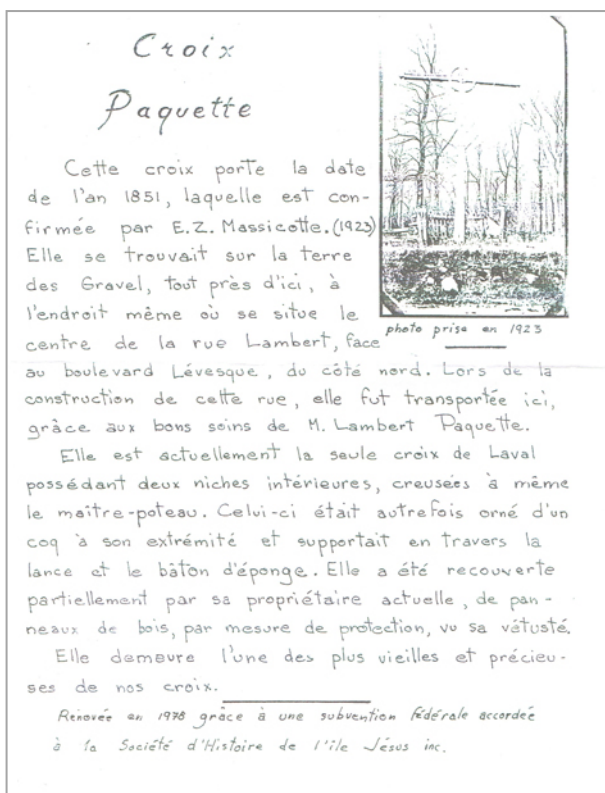 Croix
Paquette
Cette croix porte la date
de l'an 1851, laquelle est con-
firmée par E.Z. Massicotte. (1923)
Elle se trouvait sur la terre
des Gravel, tout près d'ici, à
l'endroit même où se situe le
photo prise en 1923
centre de la rue Lambert, face
au boulevard Lévesque, du côté nord. Lors de la
construction de cette rue, elle fut transportée ici,
grâce aux bons soins de M. Lambert Paquette.
Elle est actuellement la seule croix de Laval
possédant deux niches intérieures, creusées à même
le maître-poteau. Celui-ci était autrefois orné d'un
coq à son extrémité et supportait en travers la
lance et le bâton d'éponge. Elle a été recouverte
partiellement par sa propriétaire actuelle, de pan-
neaux de bois, par mesure de protection, vu sa vétusté.
Elle demeure l'une des plus vieilles et précieu-
ses de nos croix.
Rénovée en 1978 grâce à une subvention fédérale accordée
à la Société d'Histoire de l'île Jésus inc.